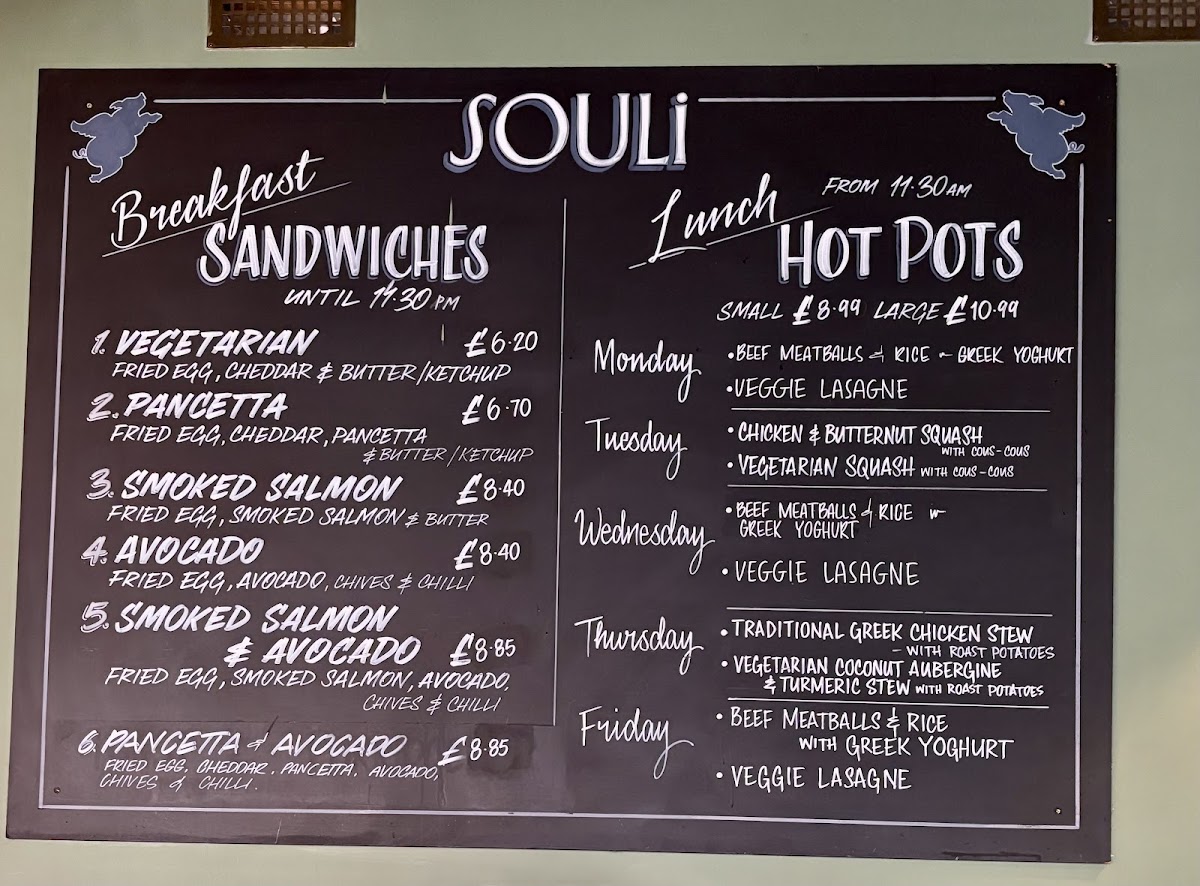 SOULi
Breakfast
SANDWICHES
UNTIL 11.30 PM
1. VEGETARIAN £6.20
FRIED EGG, CHEDDAR & BUTTER/KETCHUP
2. PANCETTA £6.70
FRIED EGG, CHEDDAR, PANCETTA
& BUTTER/KETCHUP
3. SMOKED SALMON £8.40
FRIED EGG, SMOKED SALMON & BUTTER
4. AVOCADO £8.40
FRIED EGG, AVOCADO, CHIVES & CHILLI
5. SMOKED SALMON
& AVOCADO £8.85
FRIED EGG, SMOKED SALMON, AVOCADO,
CHIVES & CHILLI
6. PANCETTA & AVOCADO £8.85
FRIED EGG, CHEDDAR, PANCETTA, AVOCADO,
CHIVES & CHILLI.
Lunch FROM 11.30AM
HOT POTS
SMALL £8.99 LARGE £10.99
Monday
• BEEF MEATBALLS & RICE - GREEK YOGHURT
• VEGGIE LASAGNE
Tuesday
• CHICKEN & BUTTERNUT SQUASH
WITH COUS-COUS
• VEGETARIAN SQUASH WITH COUS-COUS
Wednesday
• BEEF MEATBALLS & RICE W-
GREEK YOGHURT
• VEGGIE LASAGNE
Thursday
• TRADITIONAL GREEK CHICKEN STEW
- WITH ROAST POTATOES
• VEGETARIAN COCONUT AUBERGINE
& TURMERIC STEW WITH ROAST POTATOES
Friday
• BEEF MEATBALLS & RICE
WITH GREEK YOGHURT
• VEGGIE LASAGNE